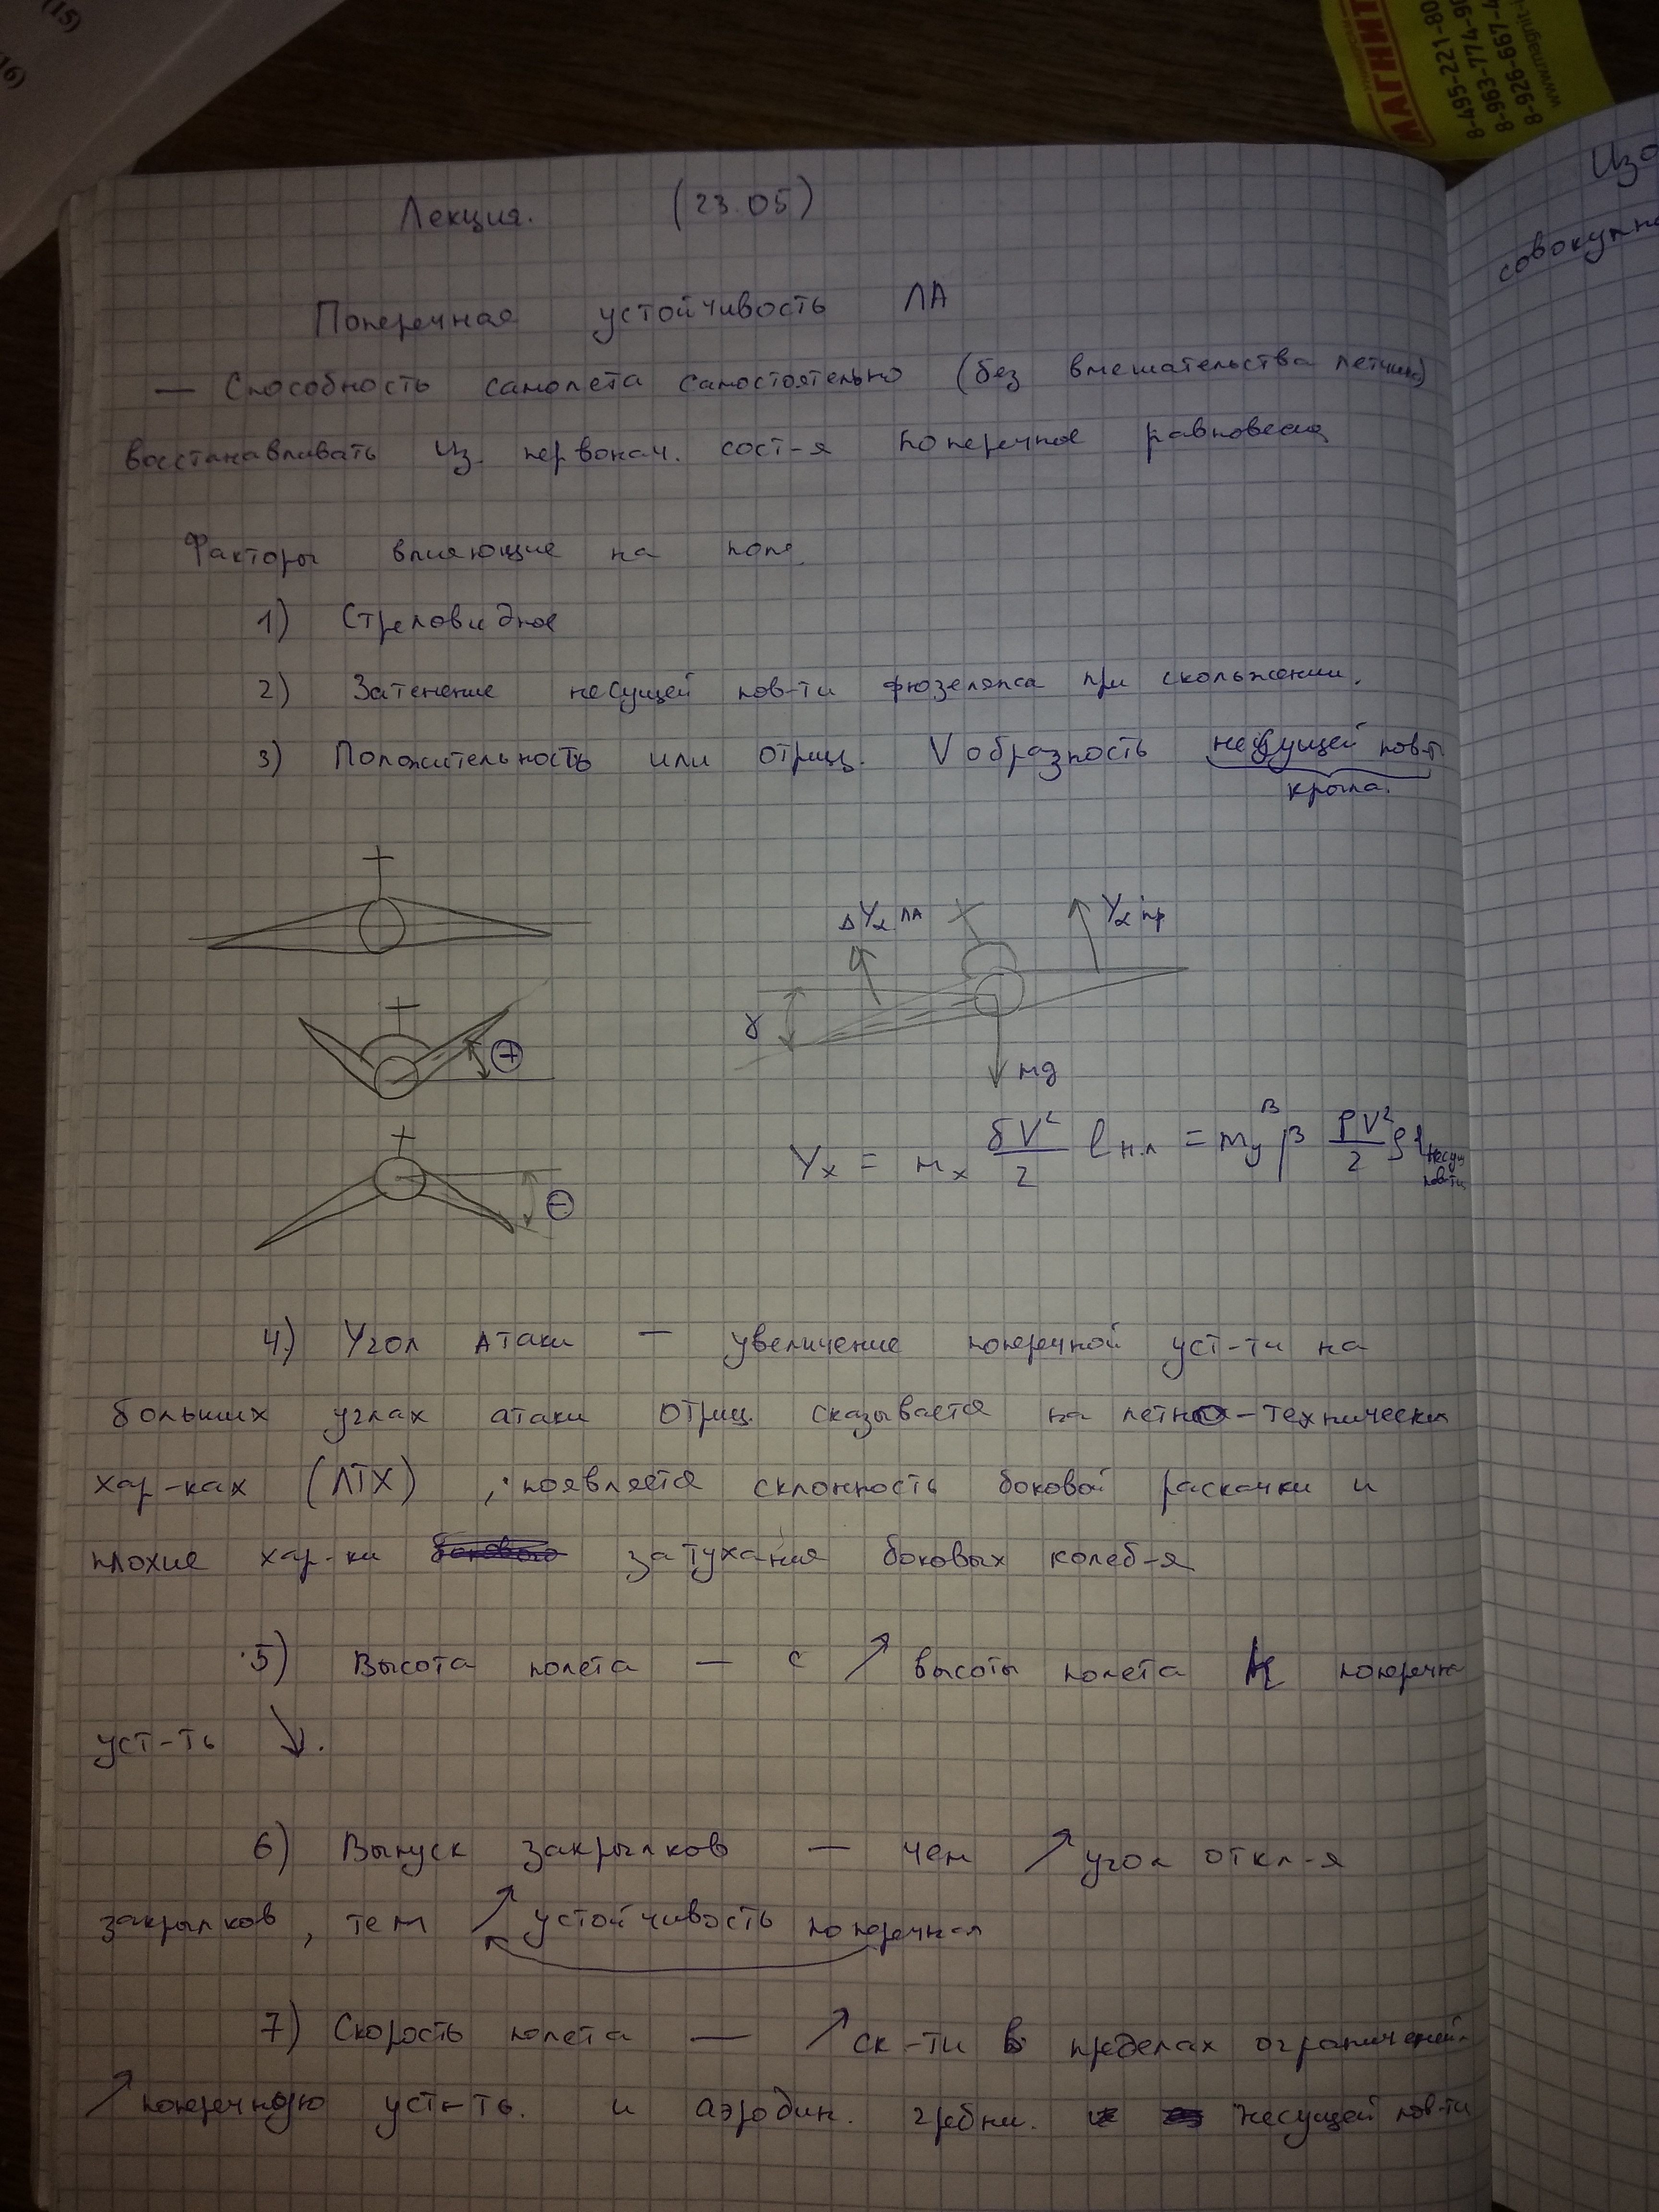 (15)
16)
МАГНИТ
8-495-221-80
8-963-774-90
8-926-667-4
www.magnit-
Изо
совокупно
Лекция. (23.05)
Поперечная устойчивость ЛА
— Способность самолета самостоятельно (без вмешательства летчика)
восстанавливать из первонач. сост-я поперечное равновесия
Факторы влияющие на
1) Стреловидное
2) Затенение несущей пов-ти фюзеляжа при скольжении.
3) Положительность или отриц. V образность несущей пов-ти
крыла.
ΔYα ЛА
Yα пр
γ
+
mg
Yx = mx δV²/2 lн.л = my^β β ρV²/2 S l несущ пов-ти
−
4) Угол атаки — увеличение поперечной уст-ти на
больших углах атаки отриц. сказывается на летно-технических
хар-ках (ЛТХ) ; появляется склонность боковой раскачки и
плохие хар-ки затухания боковых колеб-я
5) Высота полета — с ↗ высоты полета поперечна
уст-ть ↘.
6) Выпуск закрылков — чем ↗ угол откл-я
закрылков, тем ↗ устойчивость поперечная
7) Скорость полета — ↗ ск-ти в пределах ограничений
↗ поперечную уст-ть. и аэродин. гребни. несущей пов-ти